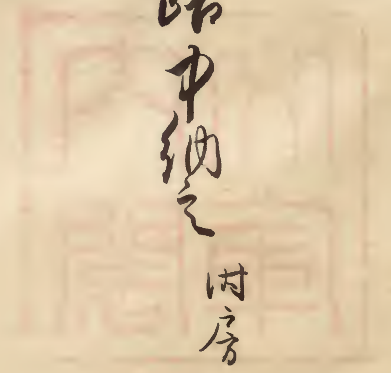 路中納言 時房